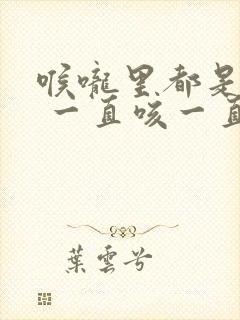 喉嚨里都是
一直咳一直
葉雲兮